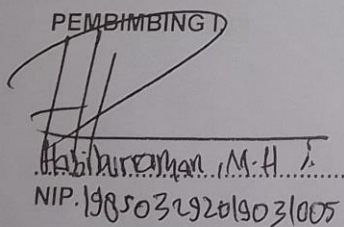 PEMBIMBING I
Habiburrahman, M.H
NIP. 198503292019031005